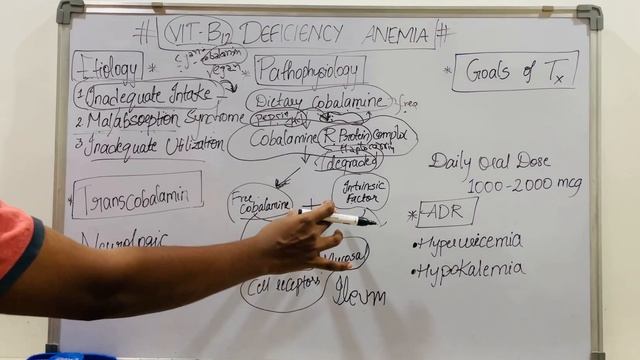 # VIT-B12 DEFICIENCY ANEMIA #
Cyano cobalamin
vegan
Etiology *
1 Inadequate Intake
2 Malabsoption Surchome
3 Inadequate Utilization
* Transcobalamin
Neurologic
Pathophysiology
Dietary Cobalamine free
pepsin HCl
Cobalamine R. Protein Complex
Haptocorrin
degraded
Free Cobalamine + Intrinsic Factor
Mucosal
Cell receptors Ileum
* Goals of Tx
Daily Oral Dose
1000-2000 mcg
* ADR
• Hyperuricemia
• Hypokalemia